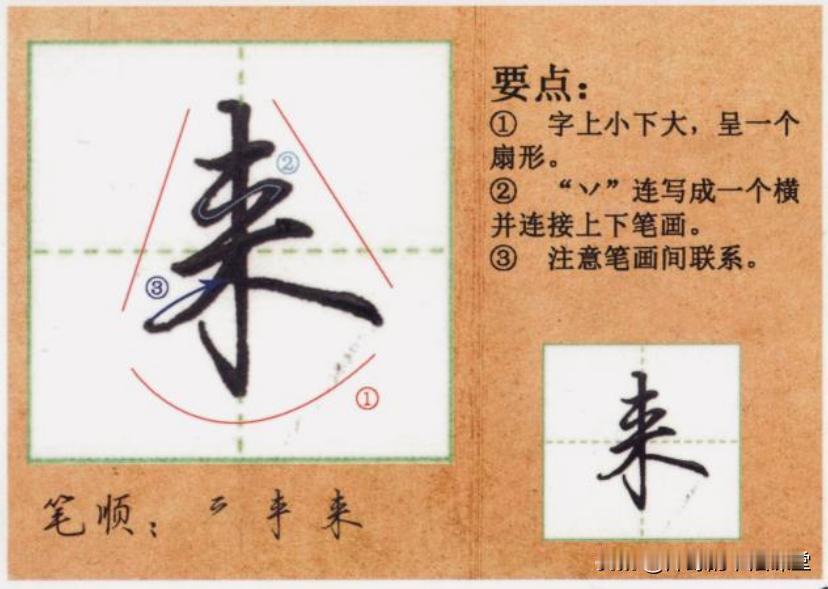 ②
③
①
来
笔顺：
来
要点：
① 字上小下大，呈一个
扇形。
② “丷”连写成一个横
并连接上下笔画。
③ 注意笔画间联系。
来